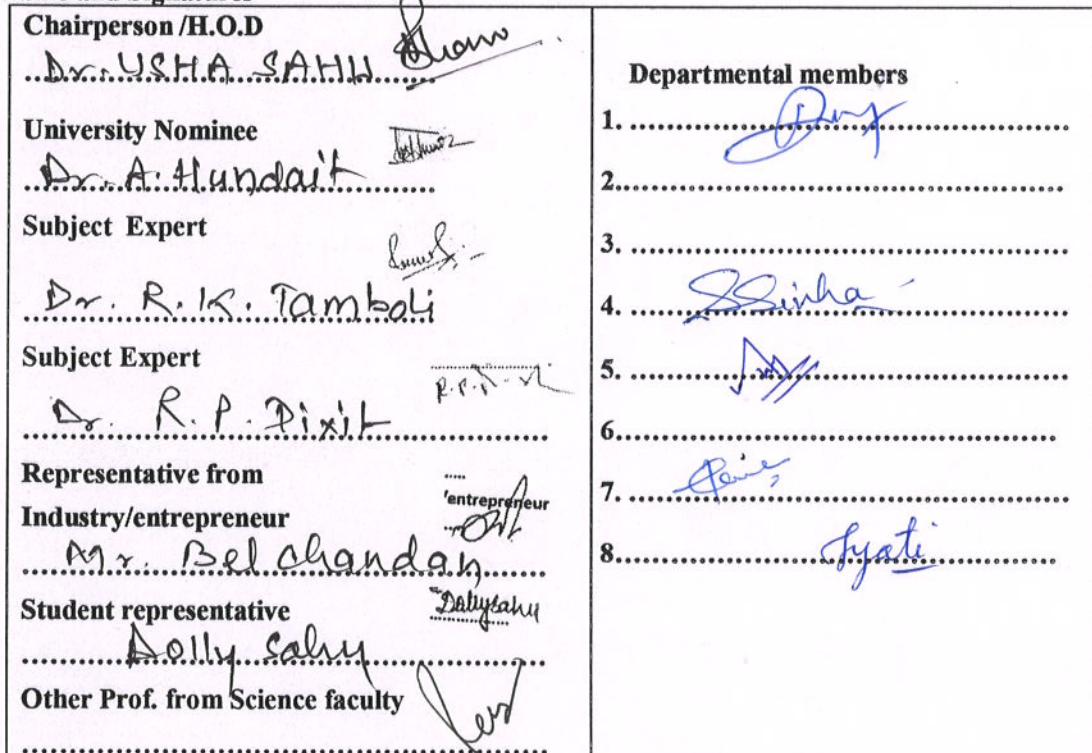 Chairperson /H.O.D
Dr. USHA SAHU
University Nominee
Dr. A. Hundait
Subject Expert
Dr. R. K. Tamboli
Subject Expert
R.P.
Dr. R. P. Dixit
Representative from
'entrepreneur
Industry/entrepreneur
Mr. Bel chandan
Student representative
Dollysahu
Dolly Sahu
Other Prof. from Science faculty
Departmental members
1.
2.
3.
4. SSinha
5.
6.
7.
8. Jyoti